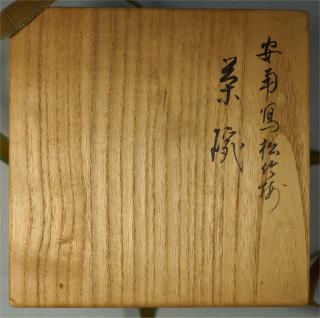 安南寫松竹梅
茶碗